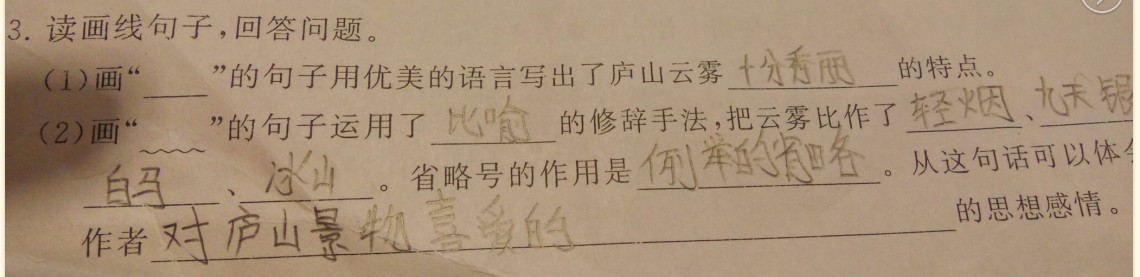 3. 读画线句子,回答问题。
(1)画“____”的句子用优美的语言写出了庐山云雾十分秀丽的特点。
(2)画“﹏﹏”的句子运用了比喻的修辞手法,把云雾比作了轻烟、九天银
白马、冰山。省略号的作用是例举的省略。从这句话可以体会
作者对庐山景物喜爱的的思想感情。